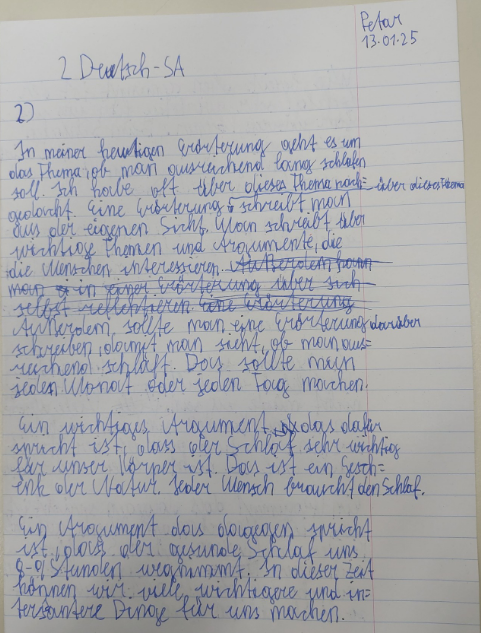 Petar
13.01.25
2 Deutsch-SA
2)
In meiner heutigen Erörterung geht es um
das Thema, ob man ausreichend lang schlafen
soll. Ich habe oft über dieses Thema nach= über dieses Thema
gedacht. Eine Erörterung schreibt man
aus der eigenen Sicht. Man schreibt über
wichtige Themen und Argumente, die
die Menschen interessieren. Außerdem kann
man in einer Erörterung über sich
selbst reflektieren eine Erörterung
Außerdem, sollte man eine Erörterung darüber
schreiben, damit man sieht, ob man aus=
reichend schläft. Das sollte man
jeden Monat oder jeden Tag machen.
Ein wichtiges Argument, das dafür
spricht ist, dass der Schlaf sehr wichtig
für unser Körper ist. Das ist ein Gesch=
enk der Natur. Jeder Mensch braucht den Schlaf.
Ein Argument das dagegen spricht
ist, dass der gesunde Schlaf uns
Stunden wegnimmt. In dieser Zeit
können wir viele wichtigere und in=
tersantere Dinge für uns machen.